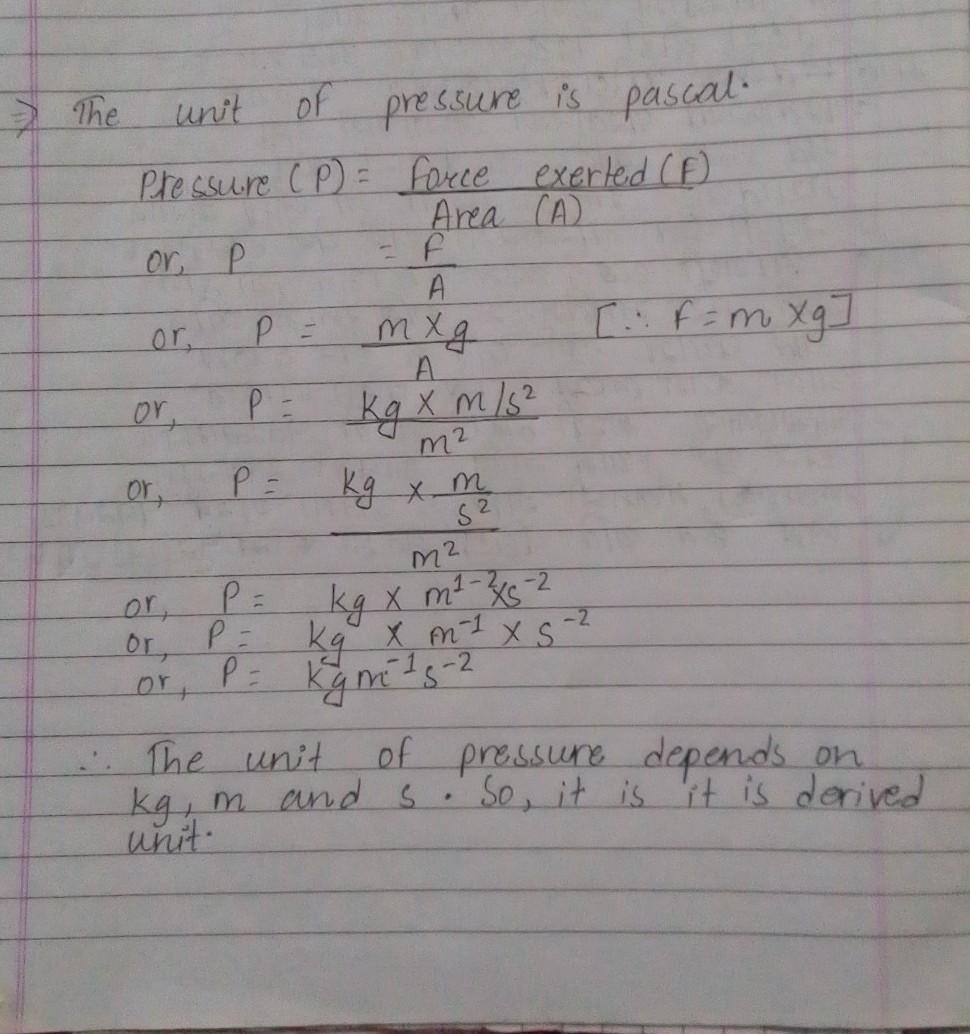 ⇒ The unit of pressure is pascal.
Pressure (P) = Force exerted (F)
Area (A)
or, P = F
A
or, P = m x g [∴ F = m x g]
A
or, P = kg x m/s²
m²
or, P = kg x m
s²
m²
or, P = kg x m¹⁻² x s⁻²
or, P = kg x m⁻¹ x s⁻²
or, P = kg m⁻¹ s⁻²
∴ The unit of pressure depends on
kg, m and s. So, it is it is derived
unit.